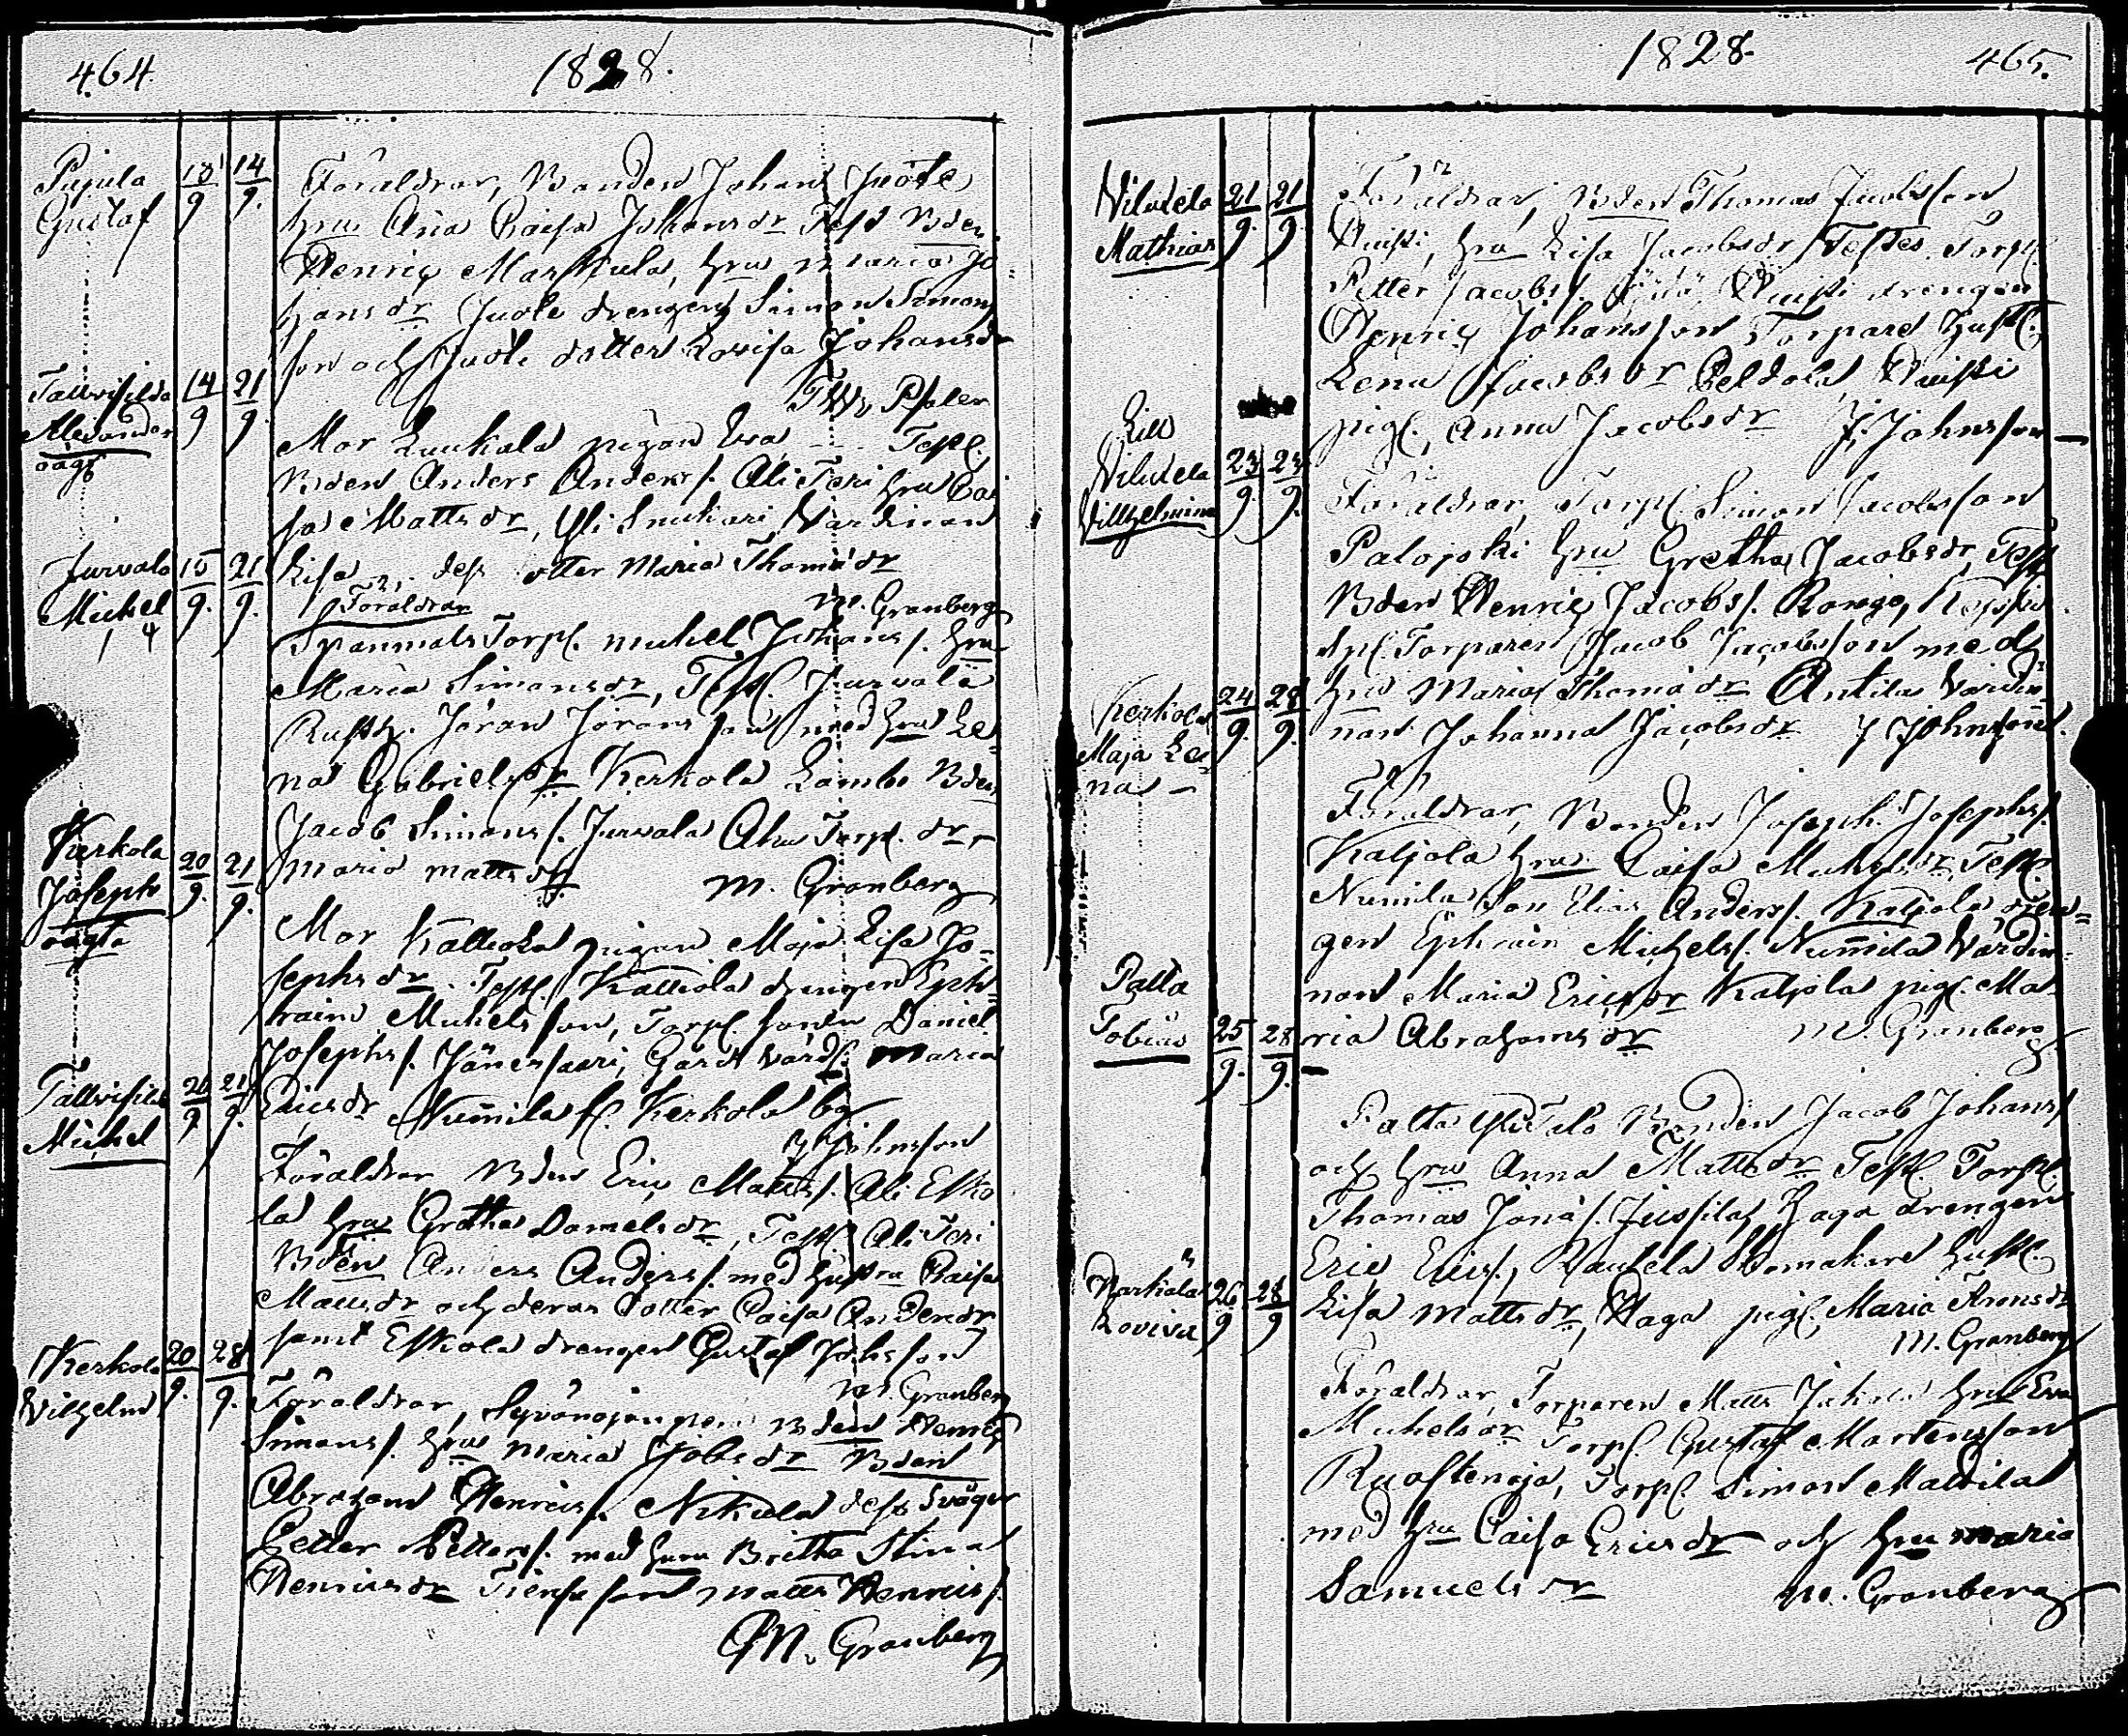 464.
1828.
Pujula
Gustaf
13/9
14/9.
Föräldrar, Bonden Johan Juote
hru Caisa Johansdr Test Bden
Henric Markkula, hru Maria Jo=
hansdr Juote drengen Simon Simons
son och Juote dotter Lovisa Johansdr
Psaler
Tallvisilda
Alexander
oägt
14/9
21/9
Mor Luukala pigan Eva Test.
Bden Anders Anders/. Ali Teri hru Cai
sa Mattsdr, Yli Värdinnan
Lisa dess dotter Maria Thomädr
M. Granberg
Jurvala
Michel
15/9.
21/9.
Föräldrar
Spanmåls Torp. Michel Johans/. hru
Maria Simonsdr, Test. Jurvala
Rusth. Jöran Jöransson med hru Le=
na Gabrielsdr Kerkola Lambo Bden
Jacob Simons/. Jurvala Torp. dr
Maria Mattsdr
M. Granberg
Kerkola
Joseph
oägta
20/9.
21/9.
Mor Kalliola pigan Maja Lisa Jo=
sephsdr. Test. Kalliola drengen Eph=
raim Michelsson, Torp. sonen Daniel
Josephs/. Jänessaari, Gård värd. Maria
Ericsdr Nummila fr. Kerkola by
J Johnsson
Tallvisilda
Michel
21/9.
Föräldrar Bden Eric Matts/. Ali Esko
la hru Gretha Danielsdr, Test. Ali Teri
Bden Anders Anders/. med hustru Caisa
Mattsdr och deras dotter Caisa Andersdr
samt Eskola drengen Gustaf Johsson
M. Granberg
Kerkola
Vilhelm
20/9.
28/9.
Föräldrar, Syvänojanpeni Bden Henric
Simons/. hru Maria Jobsdr Bden
Abraham Henrics/. Nikula dess Svåger
Petter Petters/. med hru Britha Stina
Henricsdr Matts Henrics/.
M. Granberg
1828.
465.
Vilutela
Mathias
21/9.
21/9.
Föräldrar, Bden Thomas Jacobsson
Nuisti, hru Lisa Jacobsdr Testes. Torp.
Petter Jacobs/. drengen
Henric Johansson Torpare hust.
Lena Jacobsdr Peldola
pig. Anna Jacobsdr J. Johnsson
Lill
Vilutela
Villhelmina
23/9.
23/9.
Föräldrar, Torp. Simon Jacobsson
Palojoki hru Gretha Jacobsdr, Test.
Bden Henric Jacobs/.
Torparen Jacob Jacobsson med
hru Maria Thomädr Antila Värdin=
nan Johanna Jacobsdr J Johnsson.
Kerkola
Maja Le=
na
24/9.
28/9.
Föräldrar, Bonden Joseph Josephs/.
Kaljola hru Caisa Michelsdr, Test.
Numila Son Elias Anders/. Kaljola dren=
gen Ephraim Michels/. Nummila Värdin=
nan Maria Ericsdr Kaljola pig. Ma=
ria Abrahamsdr
M. Granberg
Palta
Tobias
25/9.
28/9.
Palta Ylitalo Bonden Jacob Johans/.
och hru Anna Mattsdr Test. Torp.
Thomas Jonä/. Jussila, Haga drengen
Eric Erics/, Skomakare hust.
Lisa Mattsdr, Haga pig. Maria
M. Granberg
Markala
Lovisa
26/9
28/9
Föräldrar, Torparen Matts hru Eva
Michelsdr Torp. Gustaf Mortensson
Ruostenoja, Torp. Simon Mattila
med hru Caisa Ericsdr och hru Maria
Samuelsdr
M. Granberg